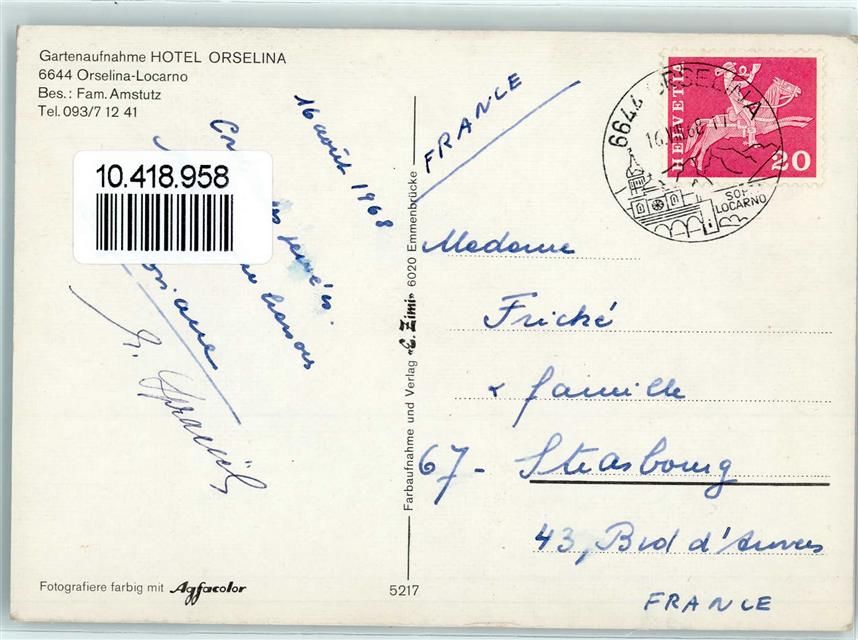 Gartenaufnahme HOTEL ORSELINA
6644 Orselina-Locarno
Bes.: Fam. Amstutz
Tel. 093/7 12 41
10.418.958
16 août 1968
Farbaufnahme und Verlag «E. Zimi» 6020 Emmenbrücke
Fotografiere farbig mit Agfacolor
5217
FRANCE
6644 ORSELINA
16.VIII.68-17
SOPRA LOCARNO
HELVETIA
20
Madame
Frické
& famille
67- Strasbourg
43, Bvd d'Anvers
FRANCE